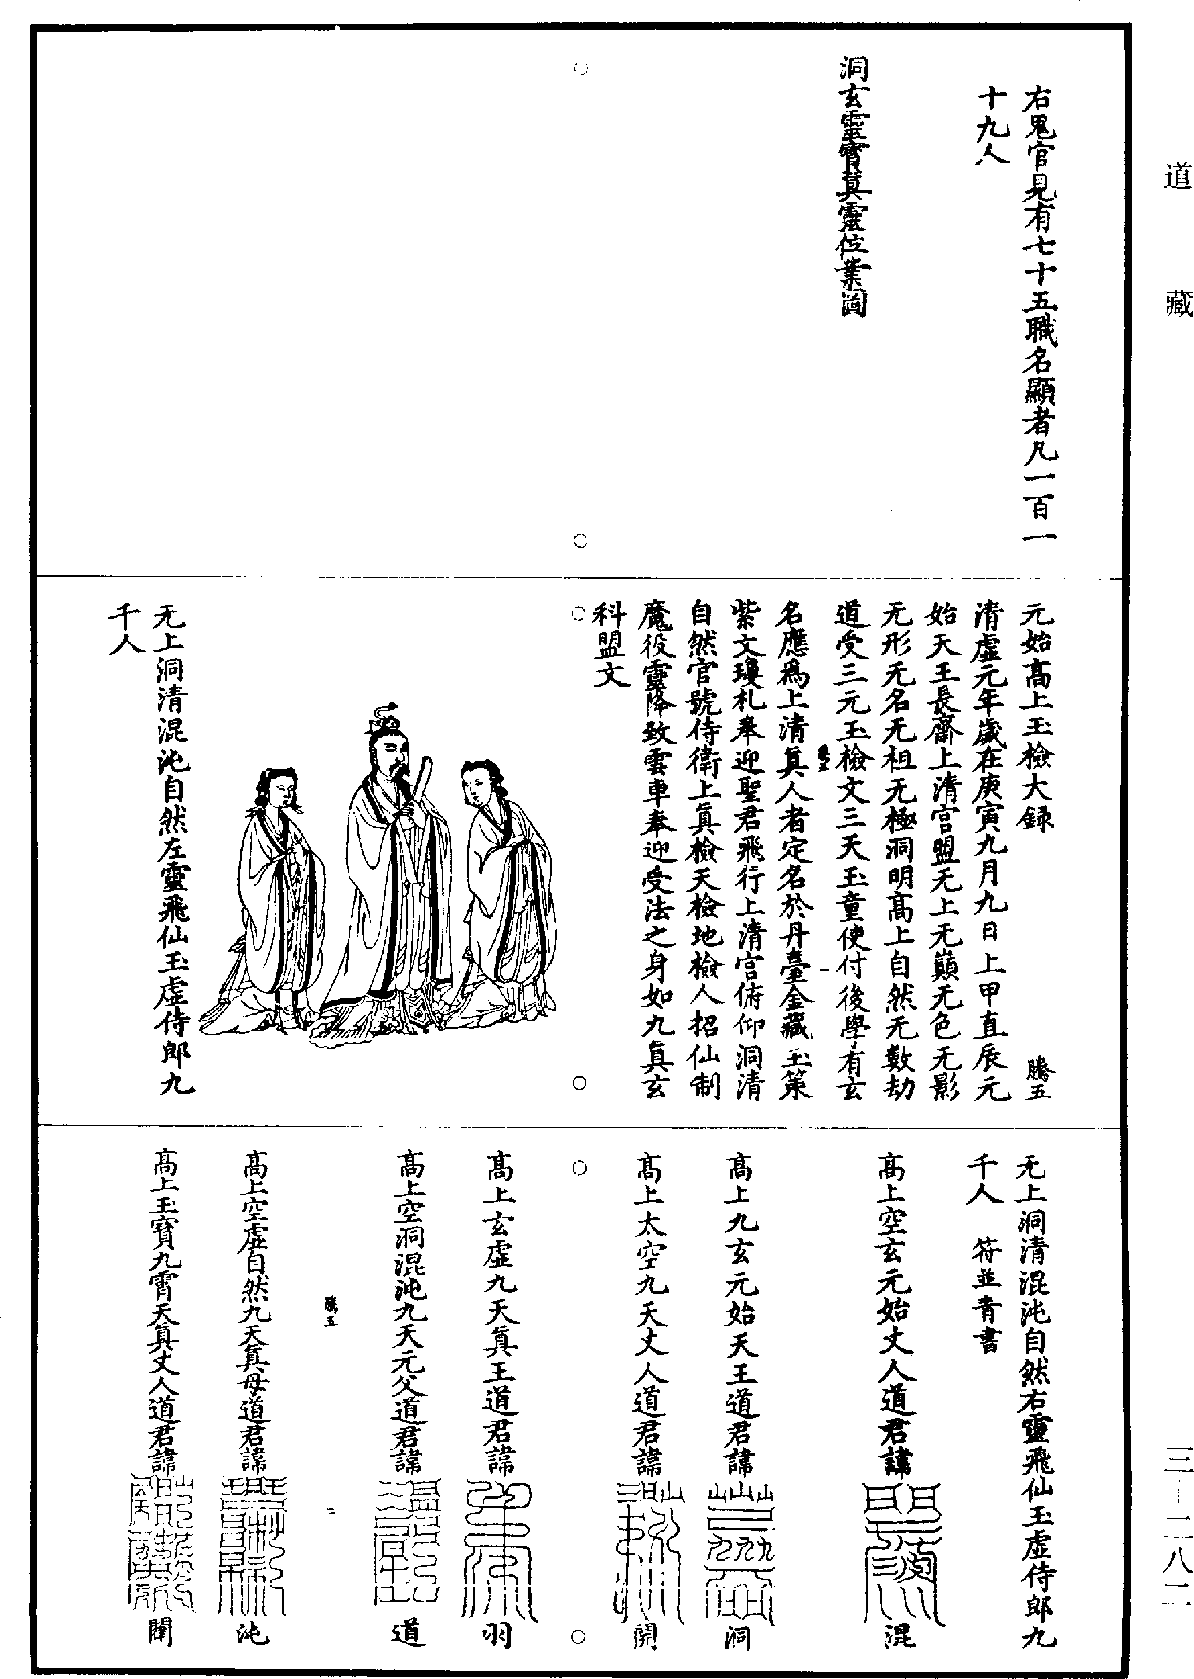 道藏
右鬼官見有七十五職名顯者凡一百一
十九人
洞玄靈寳真靈位業圖
元始髙上玉檢大録
騰五
清虛元年歲在庚寅九月九日上甲直辰元
始天王長齋上清宫盟无上无巔无色无影
无形无名无祖无極洞明髙上自然无數劫
道受三元玉檢文三天玉童使付後學有玄
騰五
一
名應爲上清真人者定名於丹臺金藏玉策
紫文瓊札奉迎聖君飛行上清宫俯仰洞清
自然官號侍衛上真檢天檢地檢人招仙制
魔役靈降致雲車奉迎受法之身如九真玄
科盟文
无上洞清混沌自然左靈飛仙玉虛侍郎九
千人
无上洞清混沌自然右靈飛仙玉虛侍郎九
千人 符並青書
髙上空玄元始丈人道君諱
混
髙上九玄元始天王道君諱
洞
髙上太空九天丈人道君諱
開
髙上玄虛九天真王道君諱
羽
髙上空洞混沌九天元父道君諱
道
騰五
二
髙上空虛自然九天真母道君諱
沌
髙上玉寳九霄天真丈人道君諱
三-二八二